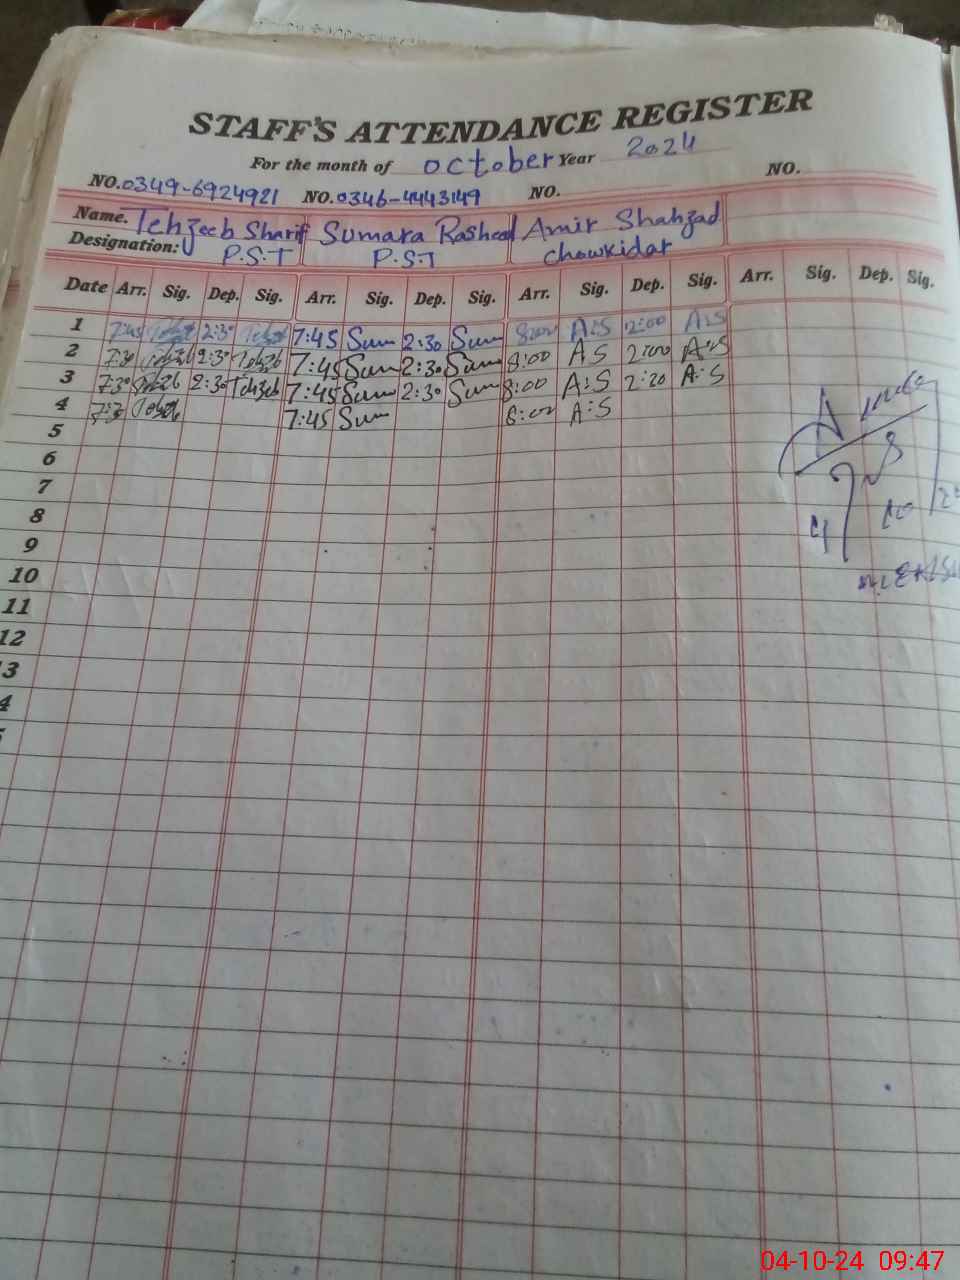 STAFF'S ATTENDANCE REGISTER
For the month of October Year 2024
NO. 0349-6924921 NO. 0346-4443149 NO. NO.
Name. Tehzeeb Sharif Sumara Rasheed Amir Shahzad
Designation: P.S.T P.S.T Chowkidar
Date Arr. Sig. Dep. Sig. Arr. Sig. Dep. Sig. Arr. Sig. Dep. Sig. Arr. Sig. Dep. Sig.
1 7:45 2:30 7:45 Sum 2:30 Sum 8:00 A:S 12:00 A:S
2 7:30 2:30 Tehzeb 7:45 Sum 2:30 Sum 8:00 A:S 2:00 A:S
3 7:30 2:30 Tehzeb 7:45 Sum 2:30 Sum 8:00 A:S 2:20 A:S
4 7:30 7:45 Sum 8:00 A:S
5
6
7
8
9
10
11
12
3
4
04-10-24 09:47